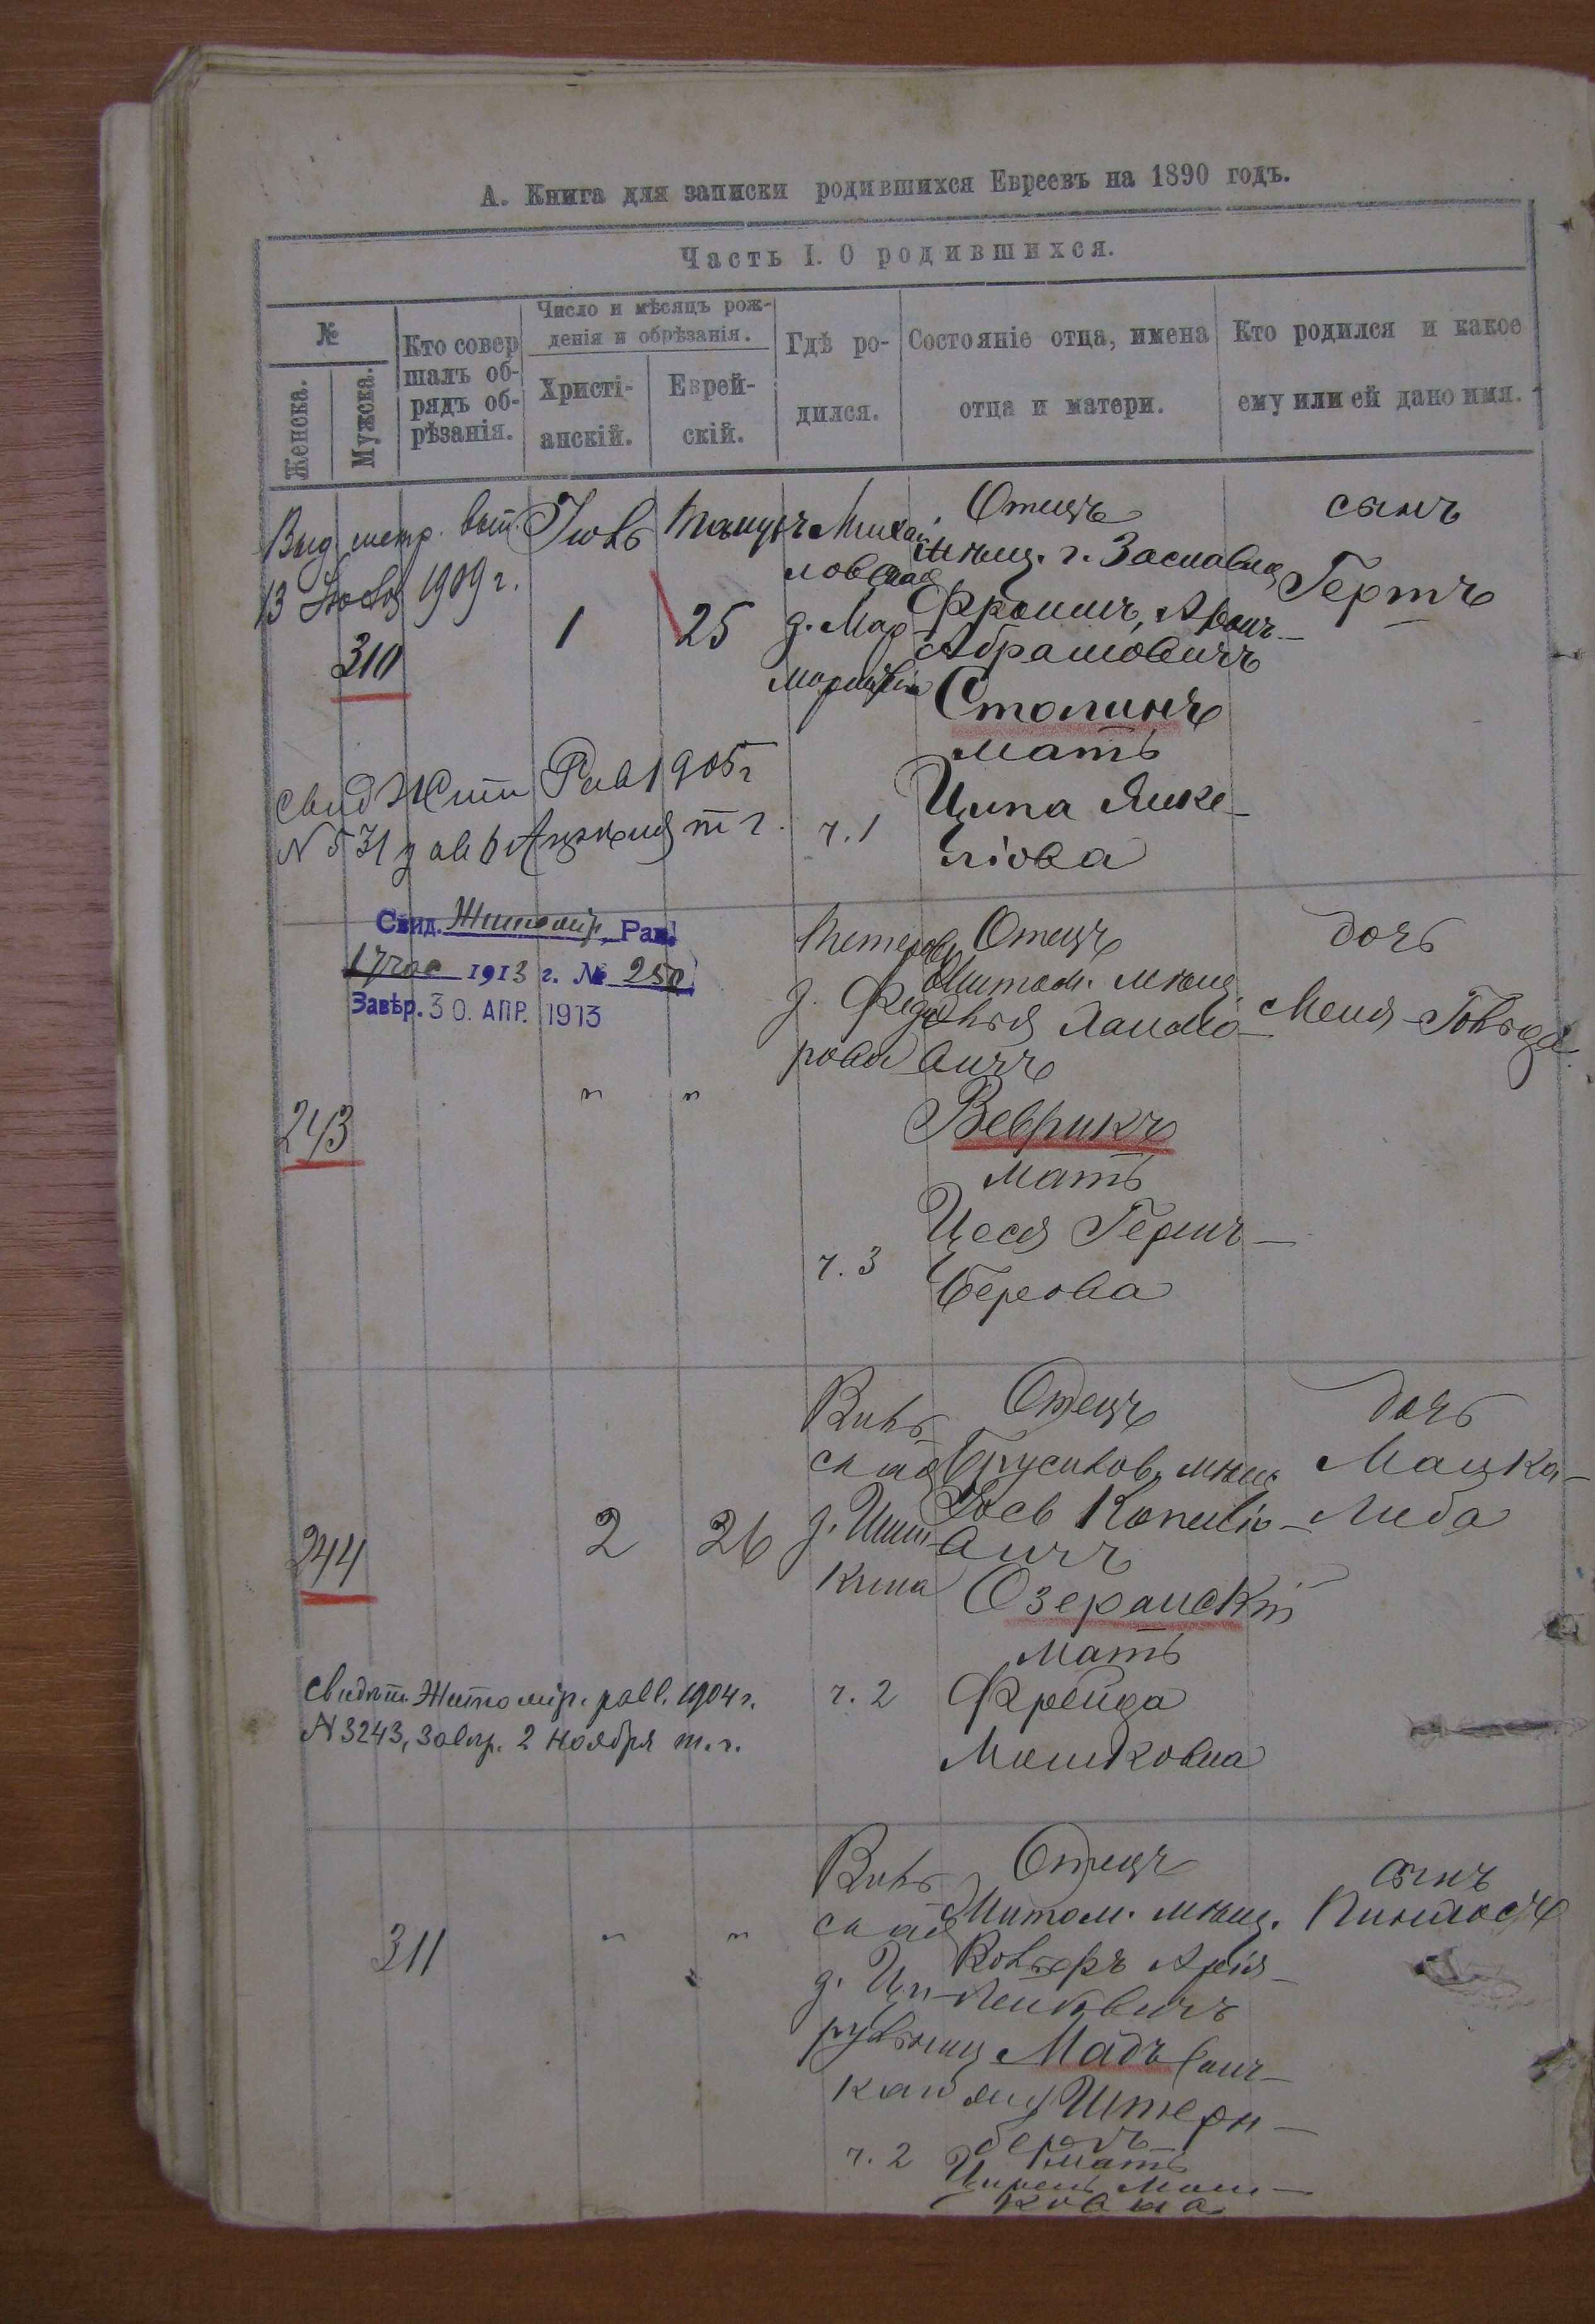 А. Книга для записки родившихся Евреевъ на 1890 годъ.
Часть I. О родившихся.
№
Женска.
Мужска.
Кто совер
шалъ об-
рядъ об-
рѣзанія.
Число и мѣсяцъ рож-
денія и обрѣзанія.
Христі-
анскій.
Еврей-
скій.
Гдѣ ро-
дился.
Состояніе отца, имена
отца и матери.
Кто родился и какое
ему или ей дано имя.
Выд метр. вып.
13 1909 г.
310
Іюль
1
Тамузъ
25
Михай
ловская
д. Мар
ч. 1
Отецъ
мѣщ. г. Заславля
Фроимъ, Аронъ-
Абрамовичъ
Столинъ
мать
Ципа Янке-
ліова
сынъ
Гершъ
Свид Жит Рав 1905 г
N 531 т г.
Свид. Житомір. Рав.
17 1913 г. № 250
Завѣр. 30. АПР. 1913
243
" "
д. Федо
рова
ч. 3
Отецъ
Житом. мѣщ.
вичъ
Веврикъ
мать
Цеся Герш-
берова
дочь
Меня-Гольда
244
2
26
Виль
ская
д. Шиш
кина
ч. 2
Отецъ
Брусилов. мѣщ
Іось Копелio-
вичъ
Озеранскій
мать
Фрейда
Мошковна
дочь
Мацка-
Либа
свидѣт. Житомір. равв. 1904 г.
N 3243, завѣр. 2 ноября т. г.
311
" "
Виль
ская
ч. 2
Отецъ
Житом. мѣщ.
Арія-
Лейбовичъ
Штерн-
бергъ
мать
Мош-
ковна
сынъ
Пинхосъ